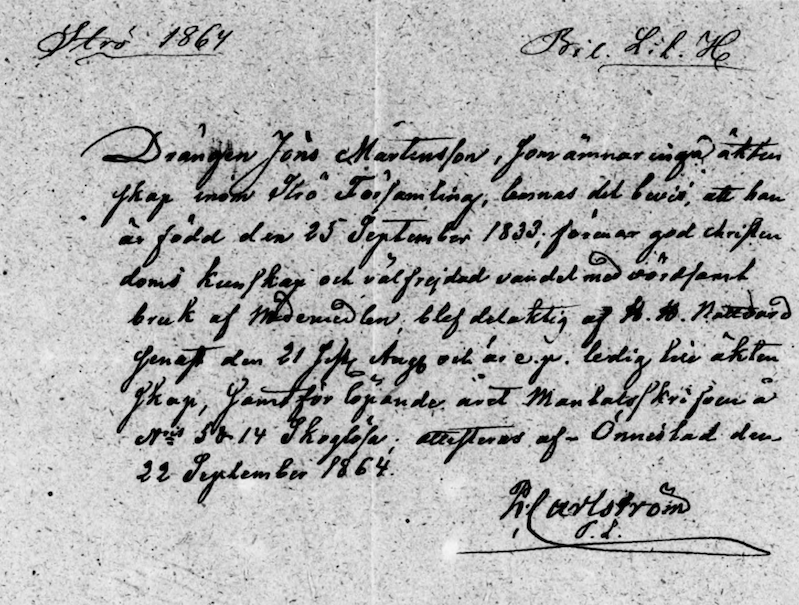 Strö 1864
Bil. Lit. H
Drängen Jöns Mårtensson, som ämnar ingå äkten
skap inom Strö Församling, lemnas det bevis, att han
är född den 25 September 1833, förenar god christen
doms kunskap och välfrejdad vandel med vördsamt
bruk af Nådemedlen, blef delaktig af H. H. Nattvard
senast den 21 sistl. Aug och är e. p. ledig till äkten
skap, samt för löpande året Mantalsskrifven å
N:ris 5 & 14 Skoglösa, attesteras af Önnestad den
22 September 1864.
Carlström